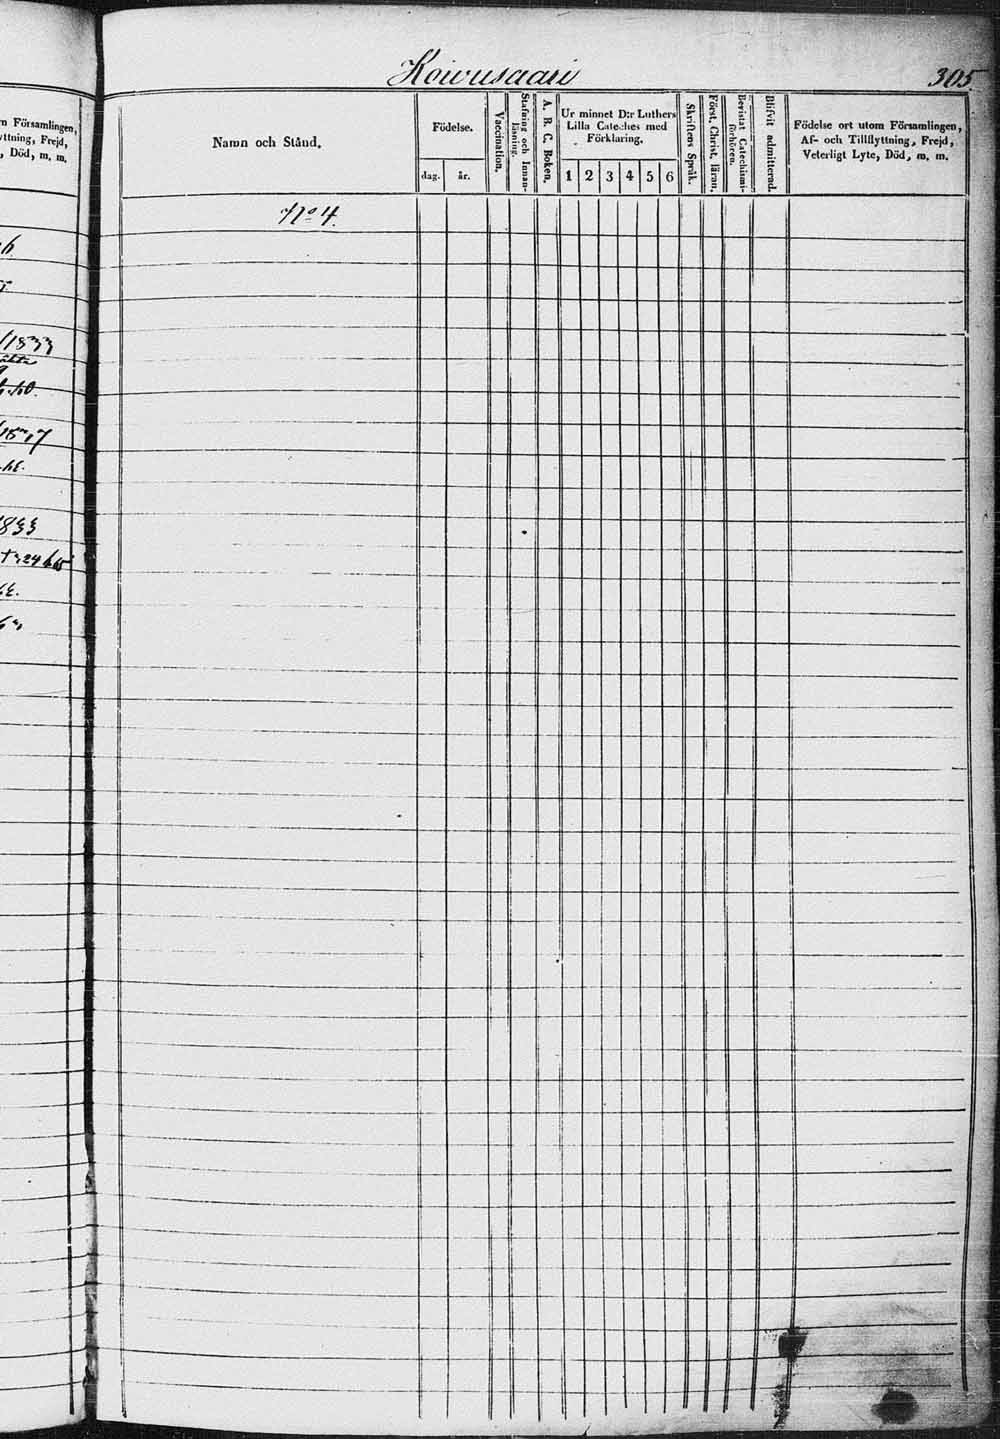 n Församlingen,
ttning, Frejd,
, Död, m. m.
1833
1833
Koiwusaari
305.
Namn och Stånd.
Födelse.
dag.
år.
Vaccination.
Stafning och Innan-
läsning.
A. B. C. Boken.
Ur minnet D:r Luthers
Lilla Cateches med
Förklaring.
1 2 3 4 5 6
Skriftens Språk.
Först. Christ. läran.
Bevistat Catechismi-
förhören.
Blifvit admitterad.
Födelse ort utom Församlingen,
Af- och Tillflyttning, Frejd,
Veterligt Lyte, Död, m. m.
No 4.